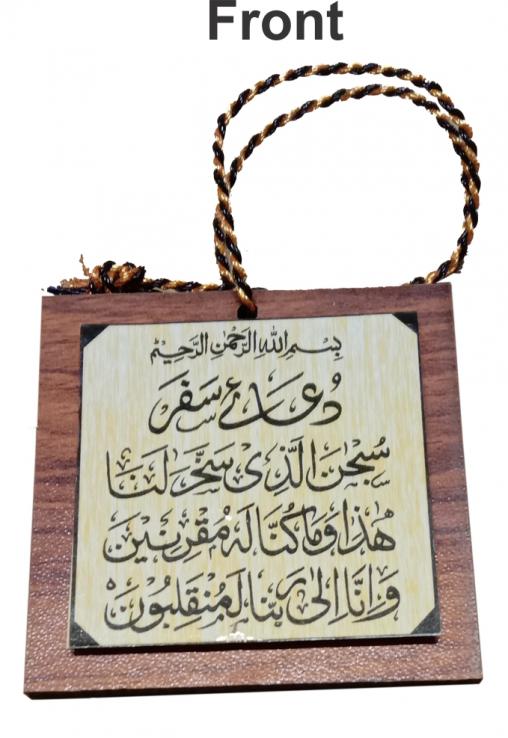 Front
بِسْمِ اللهِ الرَّحْمٰنِ الرَّحِيْمِ
دُعائے سفَر
سُبْحٰنَ الَّذِیْ سَخَّرَ لَنَا
هٰذَا وَمَا كُنَّا لَهٗ مُقْرِنِيْنَ
وَاِنَّا اِلٰى رَبِّنَا لَمُنْقَلِبُوْنَ